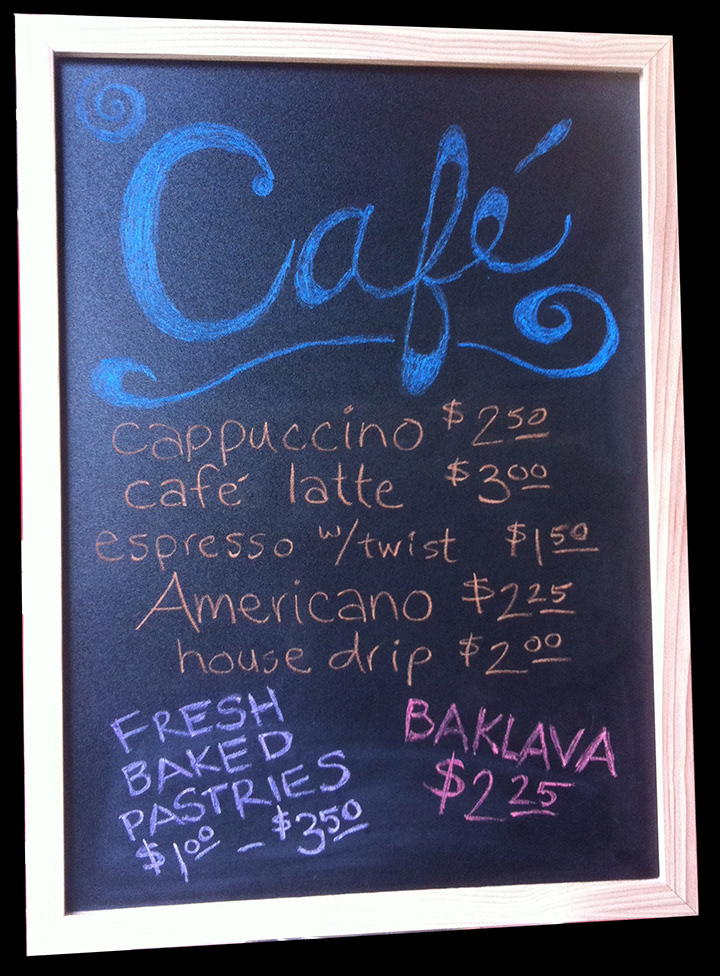 Café
cappuccino $2.50
café latte $3.00
espresso w/twist $1.50
Americano $2.25
house drip $2.00
FRESH
BAKED
PASTRIES
$1.00 - $3.50
BAKLAVA
$2.25